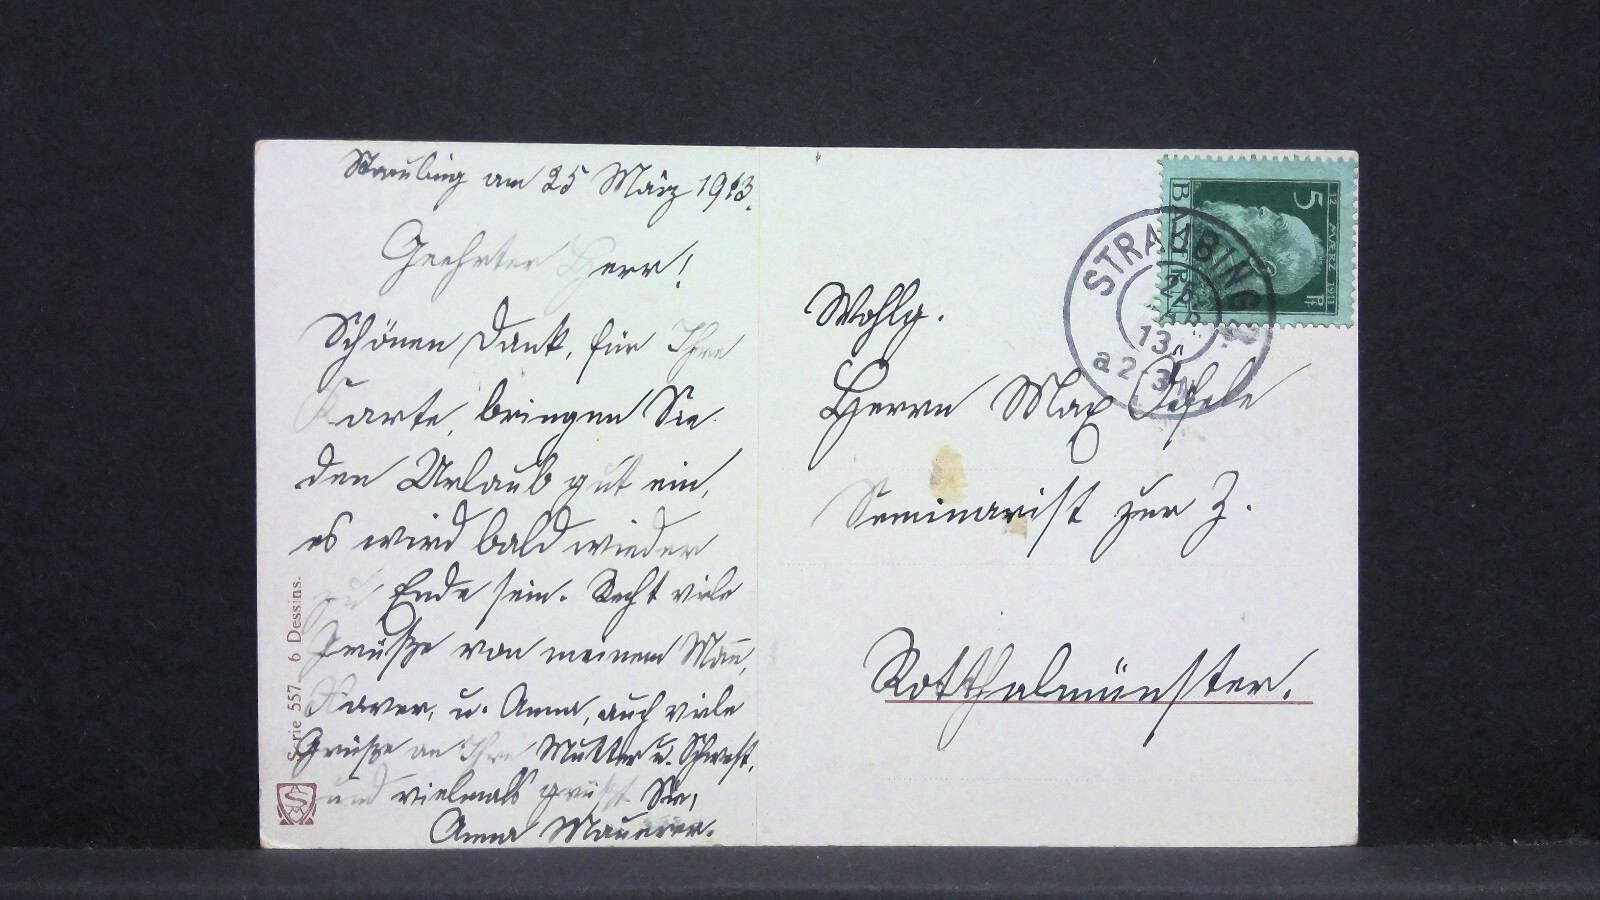 Straubing am 25 März 1913.
Geehrter Herr!
Schönen Dank, für Ihre
Karte, bringen Sie
den Urlaub gut ein,
es wird bald wieder
zu Ende sein. Recht viele
Grüße von meinem Mann,
Xaver, u. Anna, auch viele
Grüße an Ihre Mutter u. Schwest,
und vielmals grüßt Sie,
Anna Mauerer.
Serie 557. 6 Dessins.
Wohlg.
Herrn Max
Seminarist zur Z.
Rotthalmünster.
BAYERN
5 Pf
12 MAERZ 1911
STRAUBING
25
MAR
13
a 2-3 N